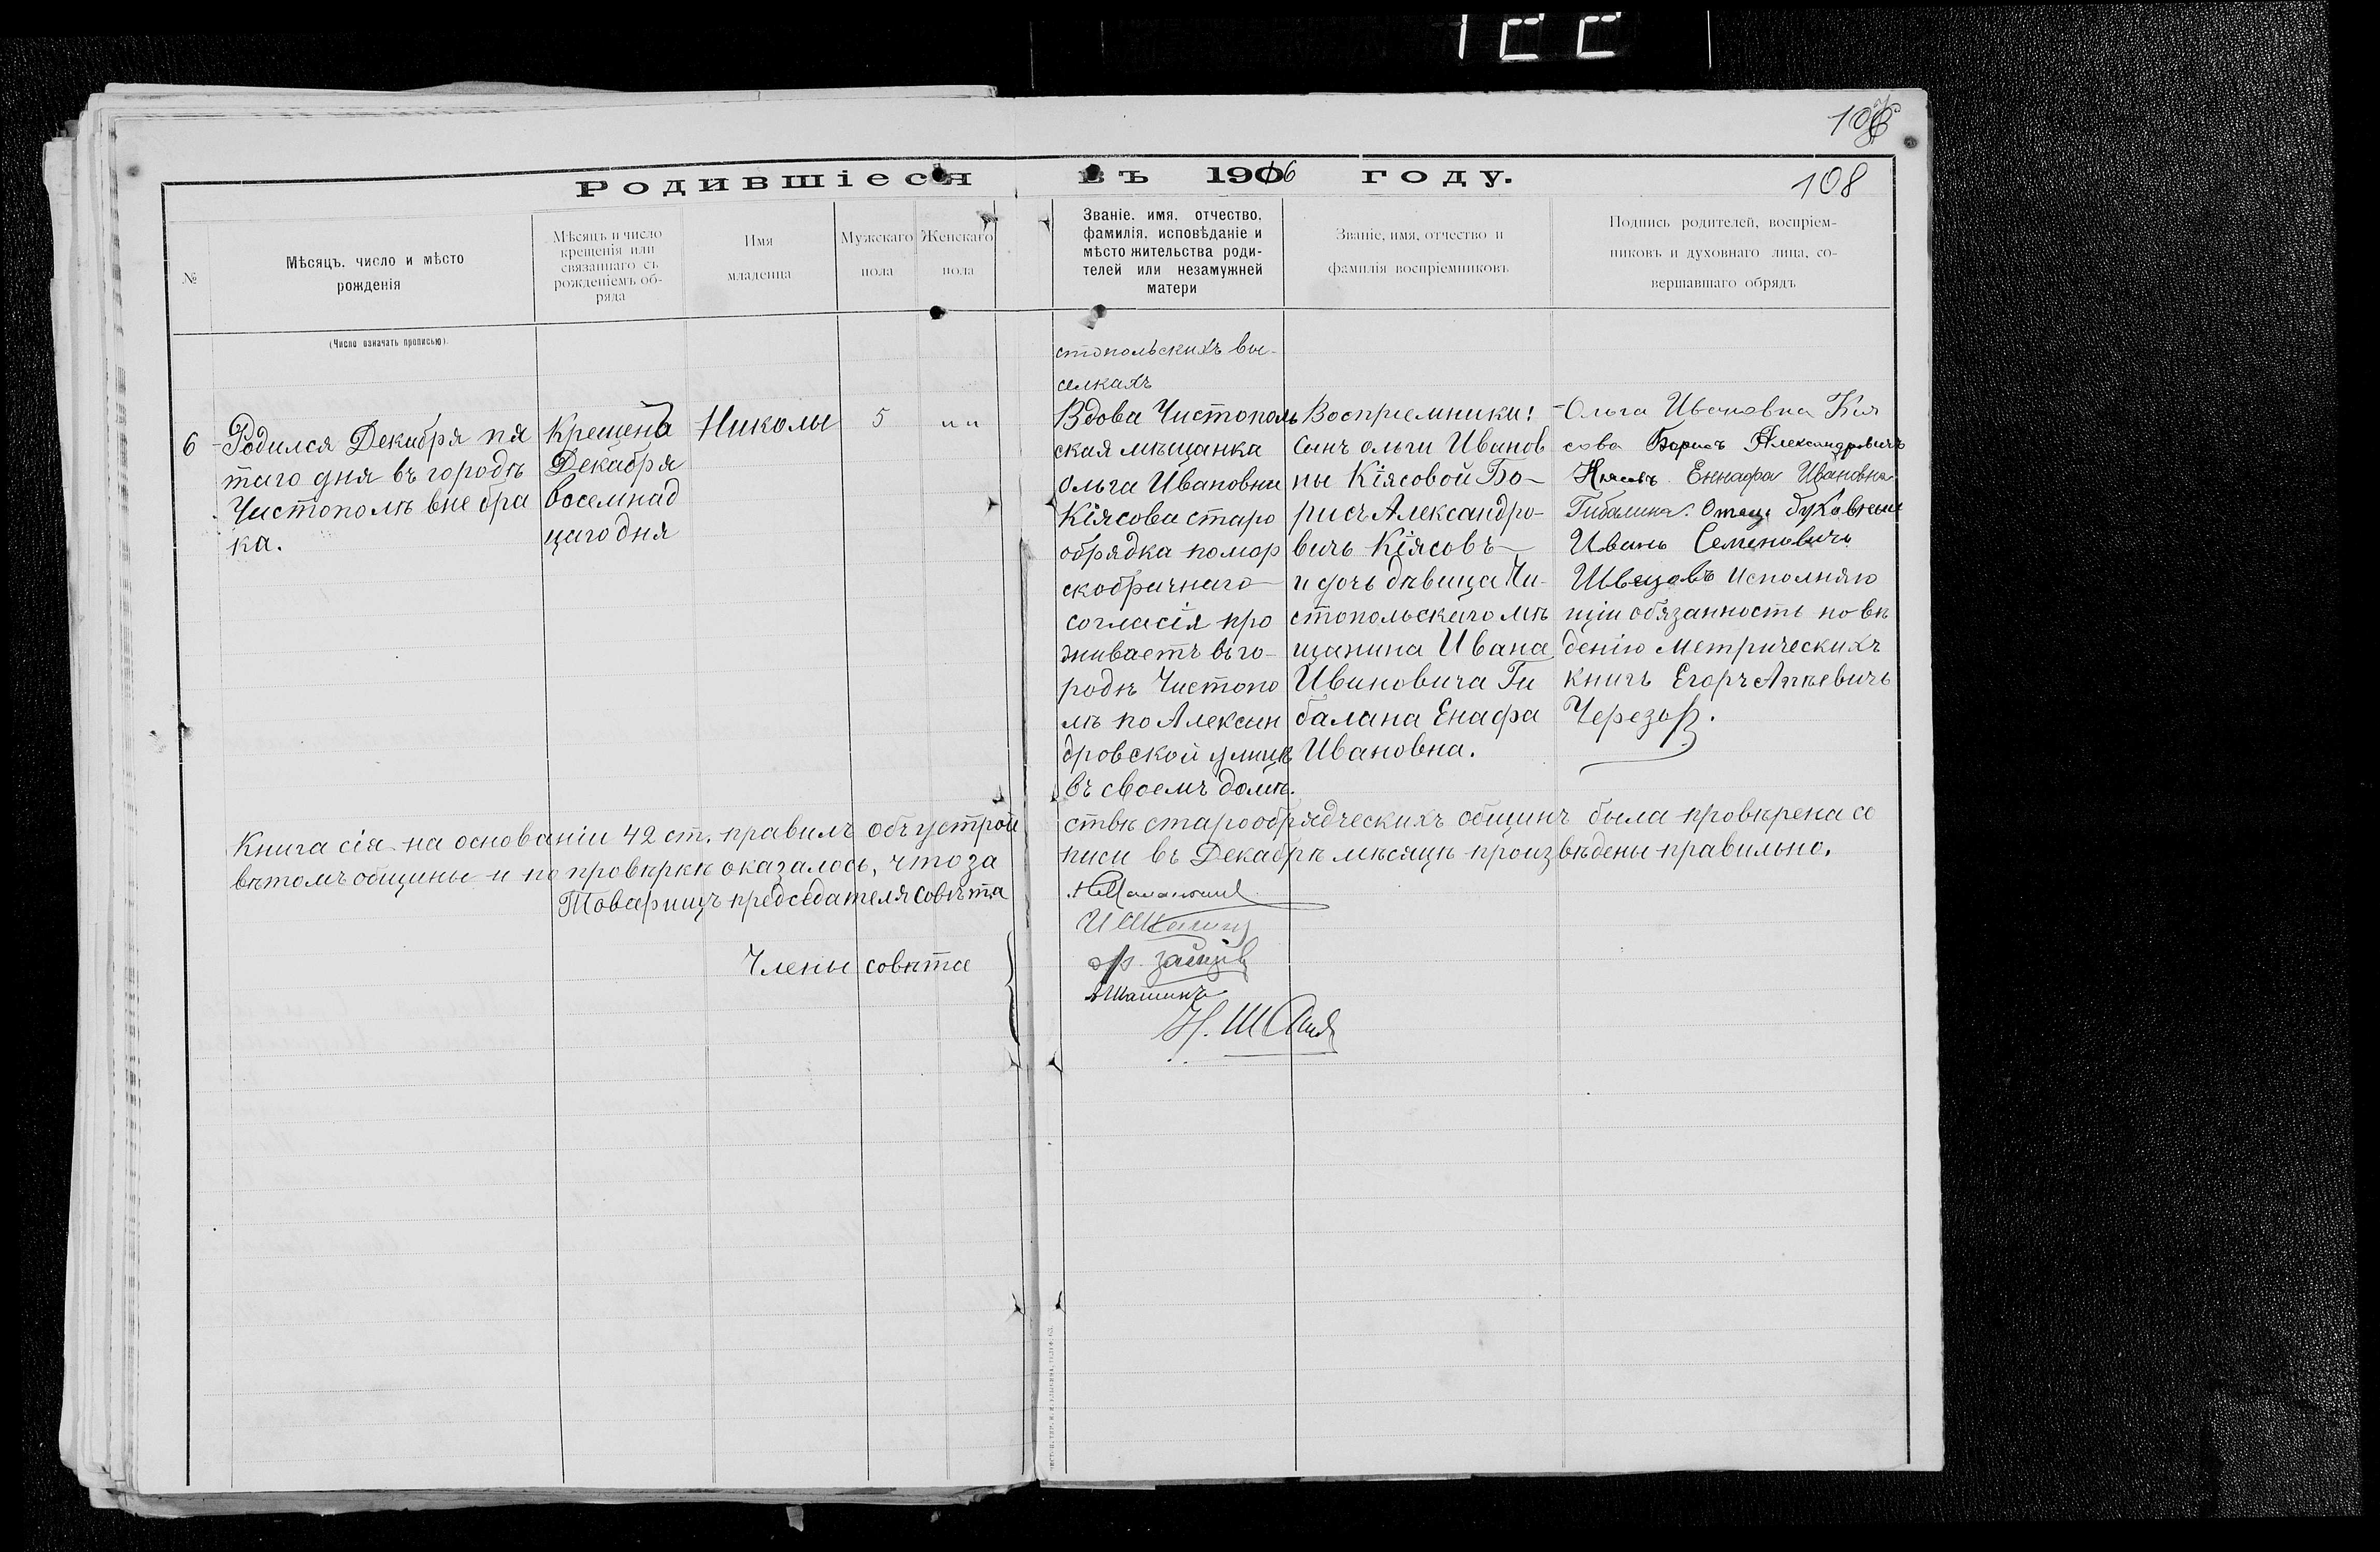 108
Родившіеся въ 1906 году.
108
№
Мѣсяцъ, число и мѣсто
рожденія
Мѣсяцъ и число
крещенія или
связаннаго съ
рожденіемъ об-
ряда
Имя
младенца
Мужскаго
пола
Женскаго
пола
Званіе, имя, отчество,
фамилія, исповѣданіе и
мѣсто жительства роди-
телей или незамужней
матери
Званіе, имя, отчество и
фамилія воспріемниковъ
Подпись родителей, воспріем-
никовъ и духовнаго лица, со-
вершавшаго обрядъ
(Число означать прописью).
стопольскихъ вы-
селкахъ
6
Родился Декабря пя
таго дня въ городѣ
Чистополѣ вне бра
ка.
Крещенъ
Декабря
восемнад
цаго дня
Николы
5
" "
Вдова Чистополь
ская мѣщанка
Ольга Ивановна
Кіясова старо
обрядка помор
скобрачнаго
согласія про
живаетъ въ го-
родѣ Чистопо
лѣ по Алексан
дровской улицѣ
въ своемъ домѣ.
Воспріемники:
Сынъ ольги Иванов
ны Кіясовой Бо-
рисъ Александро-
вичъ Кіясовъ
и дочь дѣвица Чи-
стопольскаго мѣ
щанина Ивана
Ивановича Ги
балина Енафа
Ивановна.
Ольга Ивановна Кія
сова Борисъ Александровичъ
Кіясовъ Еннафа Ивановна
Гибалина. Отецъ духовныи
Иванъ Семеновичъ
Швецовъ Исполняю
щіи обязанность по вѣ
денію метрическихъ
книгъ Егоръ Аткевичъ
Черезов.
Книга сія на основаніи 42 ст. правилъ объ устрой
ствѣ старообрядческихъ общинъ была провѣрена со
вѣтомъ общины и по провѣркѣ оказалось, что за
писи въ Декабрѣ мѣсяцѣ произвѣдены правильно.
Товарищъ предсѣдателя совѣта
Члены совѣта
зайцев
Шашинъ